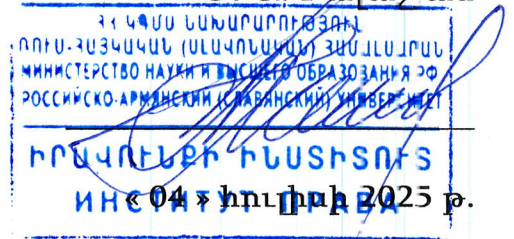 ՀՀ ԿԳՄՍ ՆԱԽԱՐԱՐՈՒԹՅՈՒՆ
ՌՈՒՍ-ՀԱՅԿԱԿԱՆ (ՍԼԱՎՈՆԱԿԱՆ) ՀԱՄԱԼՍԱՐԱՆ
МИНИСТЕРСТВО НАУКИ И ВЫСШЕГО ОБРАЗОВАНИЯ РФ
РОССИЙСКО-АРМЯНСКИЙ (СЛАВЯНСКИЙ) УНИВЕРСИТЕТ
ԻՐԱՎՈՒՆՔԻ ԻՆՍՏԻՏՈՒՏ
ИНСТИТУТ ПРАВА
« 04 » հուլիսի 2025 թ.